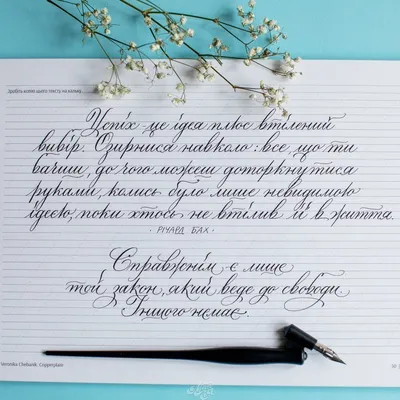 Зробіть копію цього тексту на кальку
Успіх - це ідея плюс втілений
вибір. Озирнися навколо: все, що ти
бачиш, до чого можеш доторкнутися
руками, колись було лише невидимою
ідеєю, поки хтось не втілив її в життя.
· РІЧАРД БАХ ·
Справжнім є лише
той закон, який веде до свободи.
Іншого немає.
Veronika Chebanik Copperplate